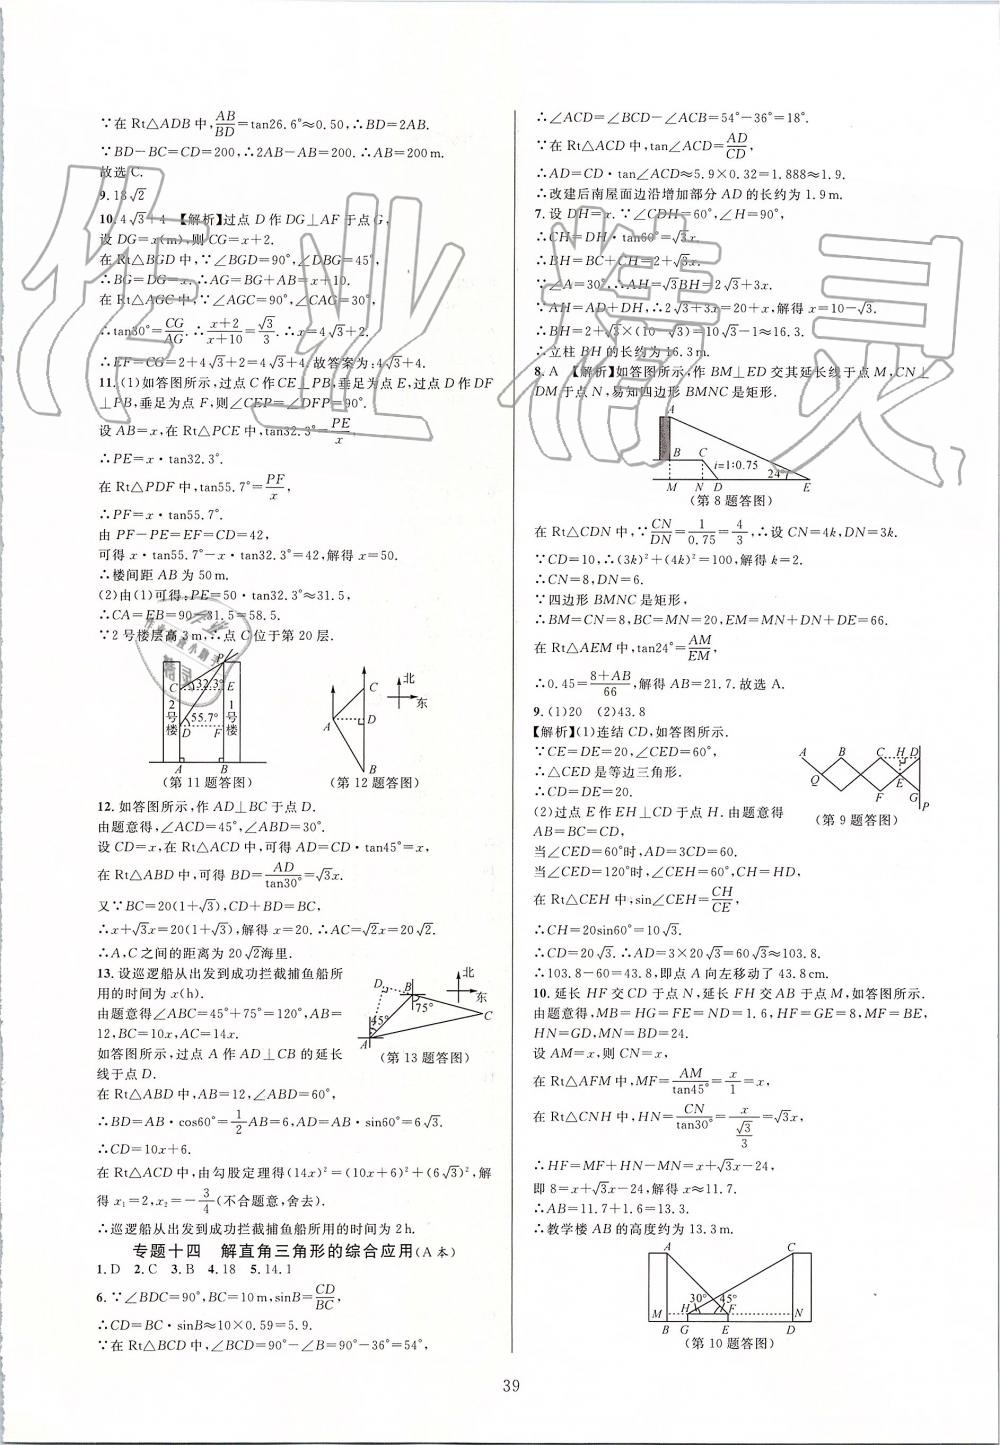 ∵在 Rt△ADB 中,AB/BD=tan26.6°≈0.50,∴BD=2AB.
∵BD-BC=CD=200,∴2AB-AB=200.∴AB=200 m.
故选 C.
9.18√2
10.4√3+4 【解析】过点 D 作 DG⊥AF 于点 G,
设 DG=x(m),则 CG=x+2.
在 Rt△BGD 中,∵∠BGD=90°,∠DBG=45°,
∴BG=DG=x.∴AG=BG+AB=x+10.
在 Rt△AGC 中,∵∠AGC=90°,∠CAG=30°,
∴tan30°=CG/AG.∴(x+2)/(x+10)=√3/3.∴x=4√3+2.
∴EF=CG=2+4√3+2=4√3+4.故答案为:4√3+4.
11.(1)如答图所示,过点 C 作 CE⊥PB,垂足为点 E,过点 D 作 DF
⊥PB,垂足为点 F,则∠CEP=∠DFP=90°.
设 AB=x,在 Rt△PCE 中,tan32.3°=PE/x
∴PE=x·tan32.3°.
在 Rt△PDF 中,tan55.7°=PF/x,
∴PF=x·tan55.7°.
由 PF-PE=EF=CD=42,
可得 x·tan55.7°-x·tan32.3°=42,解得 x=50.
∴楼间距 AB 为 50 m.
(2)由(1)可得:PE=50·tan32.3°≈31.5,
∴CA=EB=90-31.5=58.5.
∵2 号楼层高 3 m,∴点 C 位于第 20 层.
P
C 32.3° E
2号楼 1号楼
55.7°
D F
A B
(第 11 题答图)
北
东
C
A D
B
(第 12 题答图)
12.如答图所示,作 AD⊥BC 于点 D.
由题意得,∠ACD=45°,∠ABD=30°.
设 CD=x,在 Rt△ACD 中,可得 AD=CD·tan45°=x,
在 Rt△ABD 中,可得 BD=AD/tan30°=√3x.
又∵BC=20(1+√3),CD+BD=BC,
∴x+√3x=20(1+√3),解得 x=20.∴AC=√2x=20√2.
∴A,C 之间的距离为 20√2海里.
13.设巡逻船从出发到成功拦截捕鱼船所
用的时间为 x(h).
由题意得∠ABC=45°+75°=120°,AB=
12,BC=10x,AC=14x.
如答图所示,过点 A 作 AD⊥CB 的延长
线于点 D.
D B 北
75° 东
C
45°
A
(第 13 题答图)
在 Rt△ABD 中,AB=12,∠ABD=60°,
∴BD=AB·cos60°=1/2AB=6,AD=AB·sin60°=6√3.
∴CD=10x+6.
在 Rt△ACD 中,由勾股定理得(14x)²=(10x+6)²+(6√3)²,解
得 x₁=2,x₂=-3/4(不合题意,舍去).
∴巡逻船从出发到成功拦截捕鱼船所用的时间为 2 h.
专题十四 解直角三角形的综合应用(A 本)
1.D 2.C 3.B 4.18 5.14.1
6.∵∠BDC=90°,BC=10 m,sinB=CD/BC,
∴CD=BC·sinB≈10×0.59=5.9.
∵在 Rt△BCD 中,∠BCD=90°-∠B=90°-36°=54°,
∴∠ACD=∠BCD-∠ACB=54°-36°=18°.
∵在 Rt△ACD 中,tan∠ACD=AD/CD,
∴AD=CD·tan∠ACD≈5.9×0.32=1.888≈1.9.
∴改建后南屋面边沿增加部分 AD 的长约为 1.9 m.
7.设 DH=x.∵∠CDH=60°,∠H=90°,
∴CH=DH·tan60°=√3x.
∴BH=BC+CH=2+√3x.
∵∠A=30°,∴AH=√3BH=2√3+3x.
∵AH=AD+DH,∴2√3+3x=20+x,解得 x=10-√3.
∴BH=2+√3×(10-√3)=10√3-1≈16.3.
∴立柱 BH 的长约为 16.3 m.
8.A 【解析】如答图所示,作 BM⊥ED 交其延长线于点 M,CN⊥
DM 于点 N,易知四边形 BMNC 是矩形.
A
B C
i=1:0.75
24°
M N D E
(第 8 题答图)
在 Rt△CDN 中,∵CN/DN=1/0.75=4/3,∴设 CN=4k,DN=3k.
∵CD=10,∴(3k)²+(4k)²=100,解得 k=2.
∴CN=8,DN=6.
∵四边形 BMNC 是矩形,
∴BM=CN=8,BC=MN=20,EM=MN+DN+DE=66.
在 Rt△AEM 中,tan24°=AM/EM,
∴0.45=(8+AB)/66,解得 AB=21.7.故选 A.
9.(1)20 (2)43.8
【解析】(1)连结 CD,如答图所示.
∵CE=DE=20,∠CED=60°,
∴△CED 是等边三角形.
∴CD=DE=20.
(2)过点 E 作 EH⊥CD 于点 H.由题意得
AB=BC=CD,
A B C H D
Q E
F G
P
(第 9 题答图)
当∠CED=60°时,AD=3CD=60.
当∠CED=120°时,∠CEH=60°,CH=HD,
在 Rt△CEH 中,sin∠CEH=CH/CE,
∴CH=20sin60°=10√3.
∴CD=20√3.∴AD=3×20√3=60√3≈103.8.
∴103.8-60=43.8,即点 A 向左移动了 43.8cm.
10.延长 HF 交 CD 于点 N,延长 FH 交 AB 于点 M,如答图所示.
由题意得,MB=HG=FE=ND=1.6,HF=GE=8,MF=BE,
HN=GD,MN=BD=24.
设 AM=x,则 CN=x,
在 Rt△AFM 中,MF=AM/tan45°=x/1=x,
在 Rt△CNH 中,HN=CN/tan30°=x/(√3/3)=√3x,
∴HF=MF+HN-MN=x+√3x-24,
即 8=x+√3x-24,解得 x≈11.7.
∴AB=11.7+1.6=13.3.
∴教学楼 AB 的高度约为 13.3 m.
A C
30° 45°
M H F N
B G E D
(第 10 题答图)
39
作业精灵